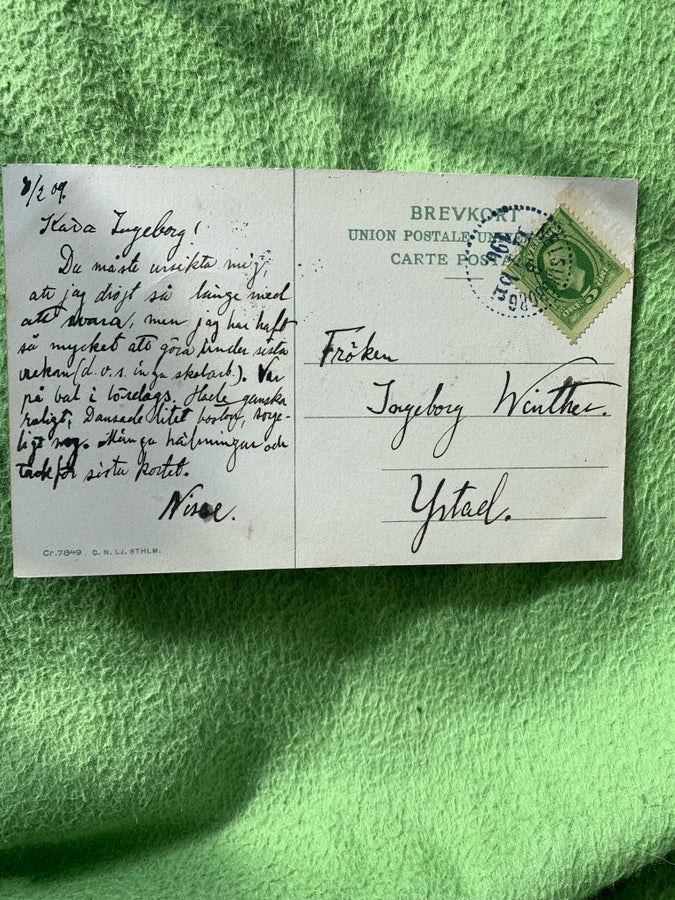 8/2 09.
Kära Ingeborg!
Du måste ursäkta mig,
att jag dröjt så länge med
att svara, men jag har haft
så mycket att göra under sista
veckan (d.v.s. inga skolarb.). Var
på bal i lördags. Hade ganska
roligt. Dansade litet boston, sorg-
ligt nog. Många hälsningar och
tack för sista kortet.
Nisse.
Cr. 7849 D. N. LJ. STHLM.
BREVKORT
UNION POSTALE
CARTE POSTALE
Fröken
Ingeborg Winther.
Ystad.